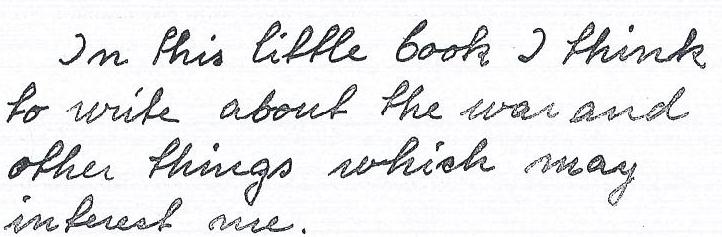 In this little book I think
to write about the war and
other things which may
interest me.